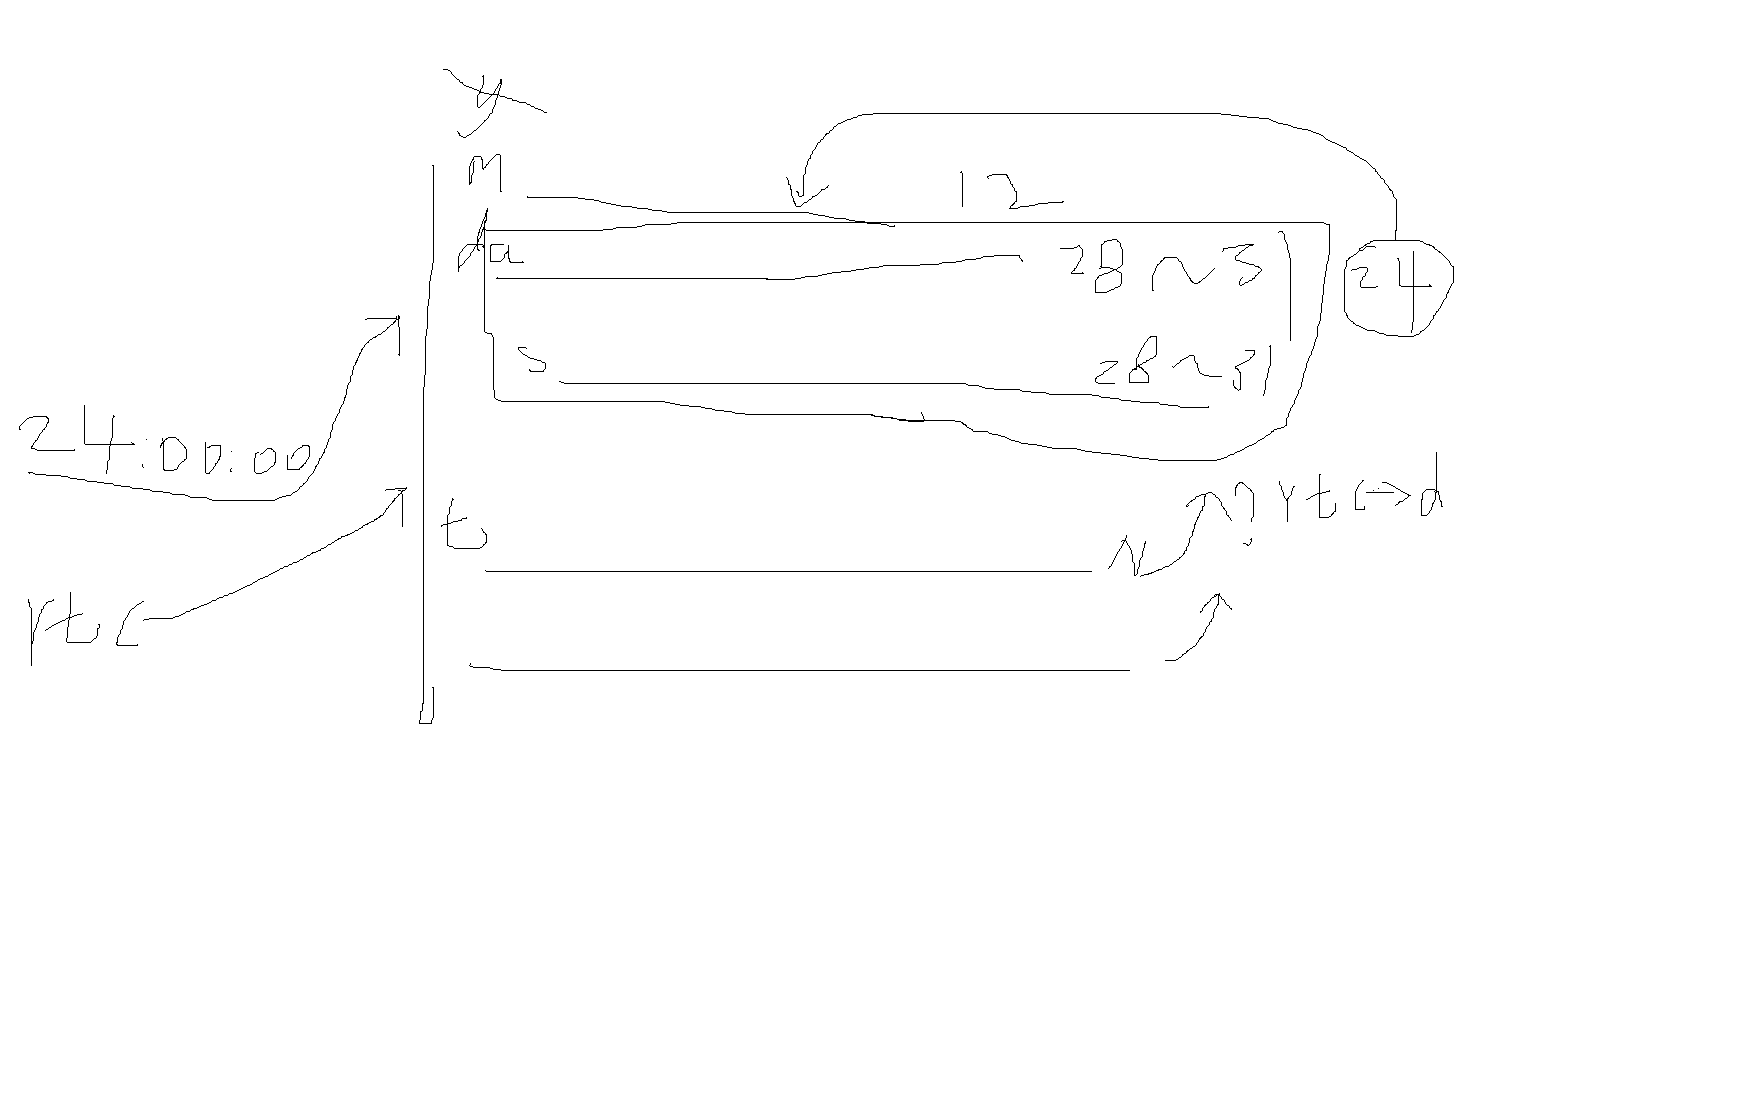 y
M 12
da 28~31
24
s 28~31
24:00:00
? rt ↔ d
t N
rt